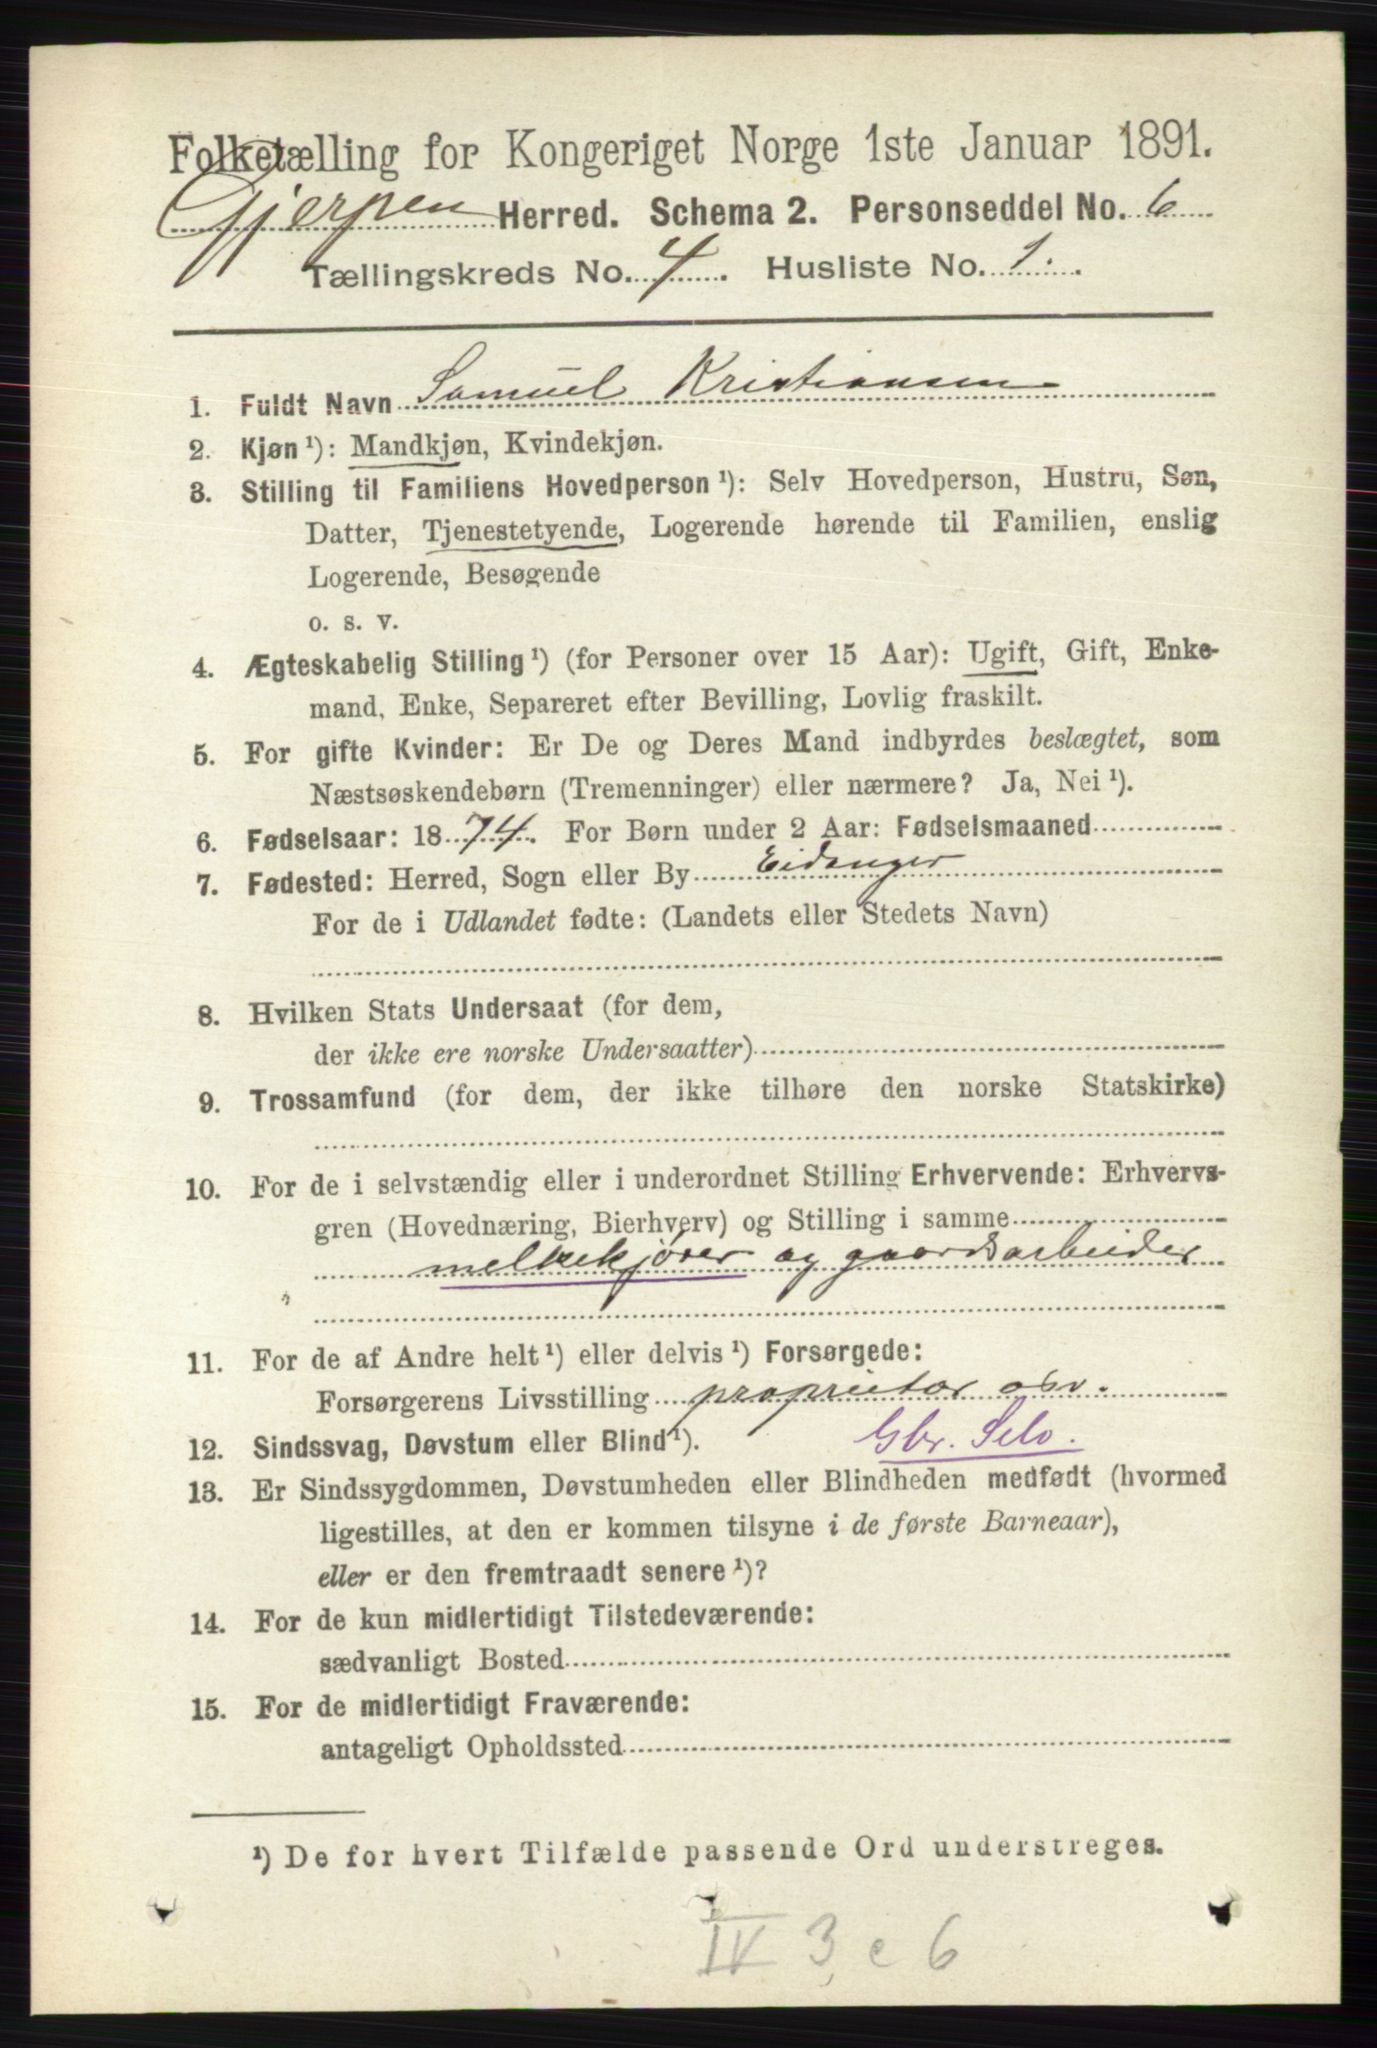 Folketælling for Kongeriget Norge 1ste Januar 1891.
Gjerpen Herred. Schema 2. Personseddel No. 6
Tællingskreds No. 4. Husliste No. 1.
1. Fuldt Navn Samuel Kristiansen
2. Kjøn ¹): Mandkjøn, Kvindekjøn.
3. Stilling til Familiens Hovedperson ¹): Selv Hovedperson, Hustru, Søn,
Datter, Tjenestetyende, Logerende hørende til Familien, enslig
Logerende, Besøgende
o. s. v.
4. Ægteskabelig Stilling ¹) (for Personer over 15 Aar): Ugift, Gift, Enke-
mand, Enke, Separeret efter Bevilling, Lovlig fraskilt.
5. For gifte Kvinder: Er De og Deres Mand indbyrdes beslægtet, som
Næstsøskendebørn (Tremenninger) eller nærmere? Ja, Nei ¹).
6. Fødselsaar: 1874. For Børn under 2 Aar: Fødselsmaaned
7. Fødested: Herred, Sogn eller By Eidanger
For de i Udlandet fødte: (Landets eller Stedets Navn)
8. Hvilken Stats Undersaat (for dem,
der ikke ere norske Undersaatter)
9. Trossamfund (for dem, der ikke tilhøre den norske Statskirke)
10. For de i selvstændig eller i underordnet Stilling Erhvervende: Erhvervs-
gren (Hovednæring, Bierhverv) og Stilling i samme
melkekjører og gaardsarbeider
11. For de af Andre helt ¹) eller delvis ¹) Forsørgede:
Forsørgerens Livsstilling proprietær osv.
Gbr. Selv.
12. Sindssvag, Døvstum eller Blind ¹).
13. Er Sindssygdommen, Døvstumheden eller Blindheden medfødt (hvormed
ligestilles, at den er kommen tilsyne i de første Barneaar),
eller er den fremtraadt senere ¹)?
14. For de kun midlertidigt Tilstedeværende:
sædvanligt Bosted
15. For de midlertidigt Fraværende:
antageligt Opholdssted
¹) De for hvert Tilfælde passende Ord understreges.
IV 3 e 6